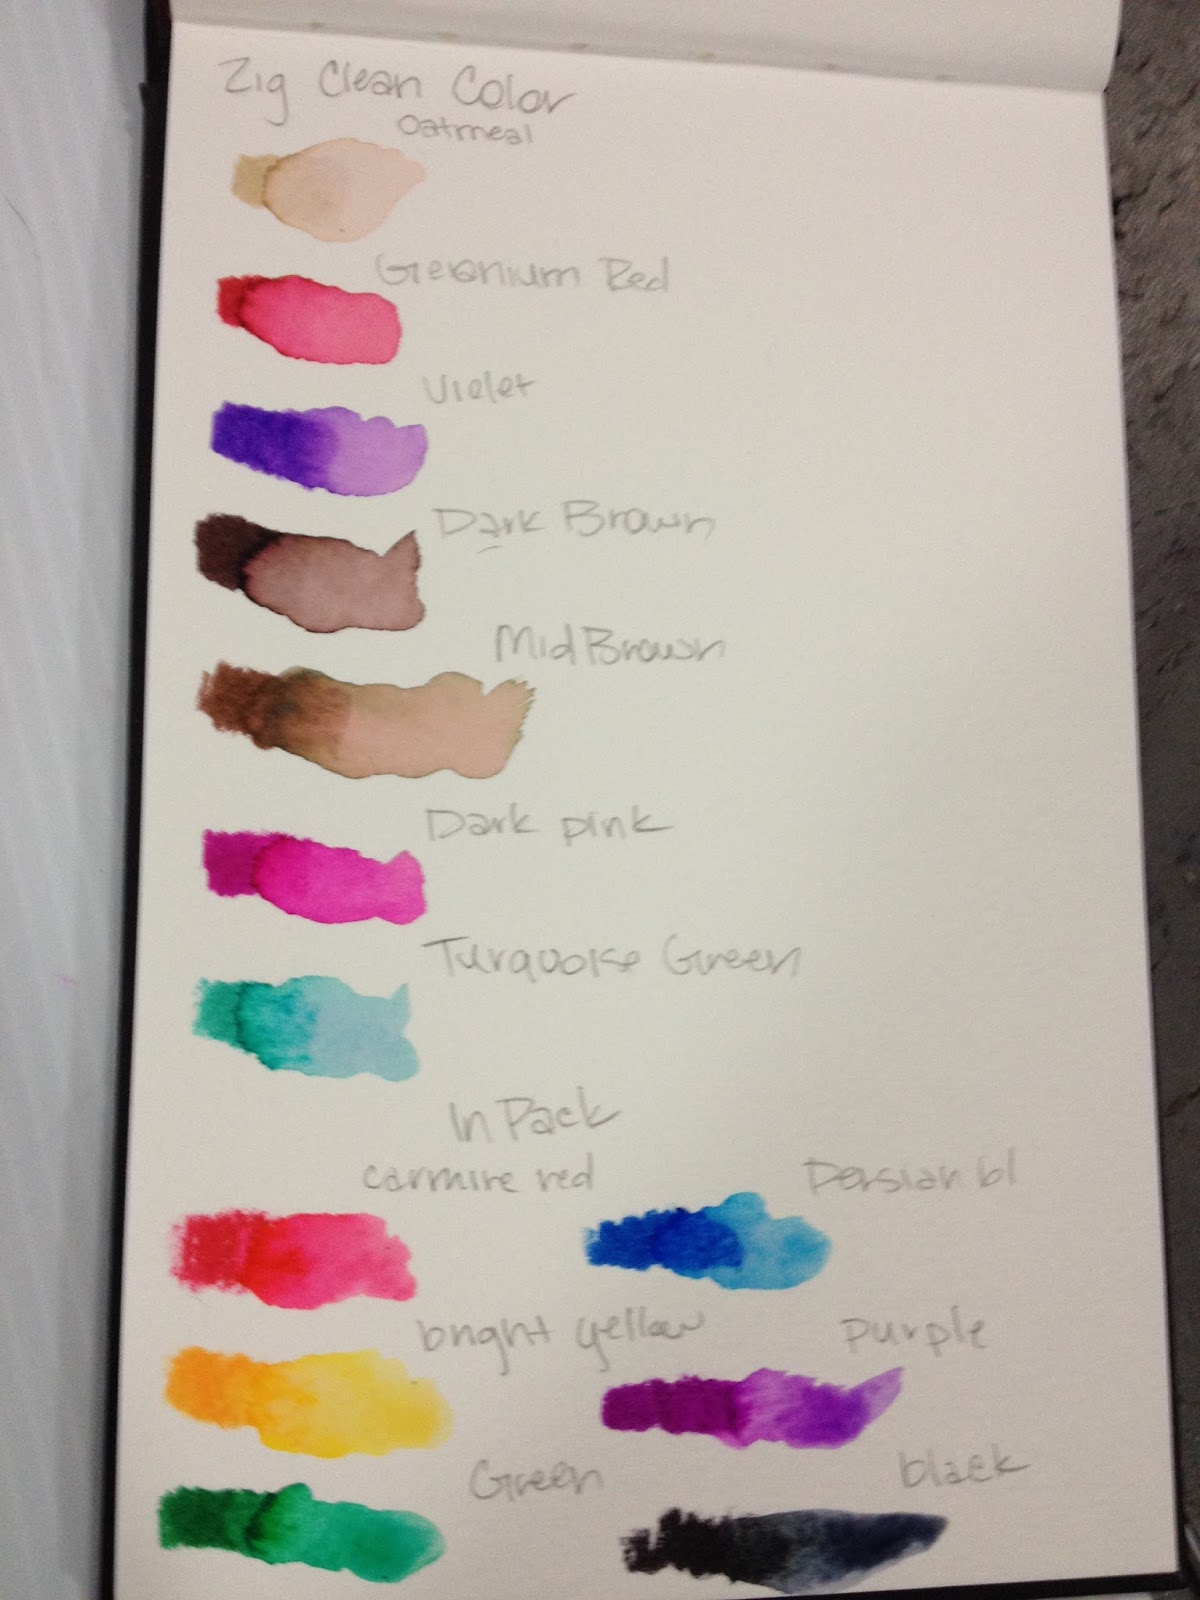 Zig Clean Color
Oatmeal
Geranium Red
Violet
Dark Brown
Mid Brown
Dark pink
Turquoise Green
In Pack
carmine red
Persian bl
bright yellow
purple
Green
black